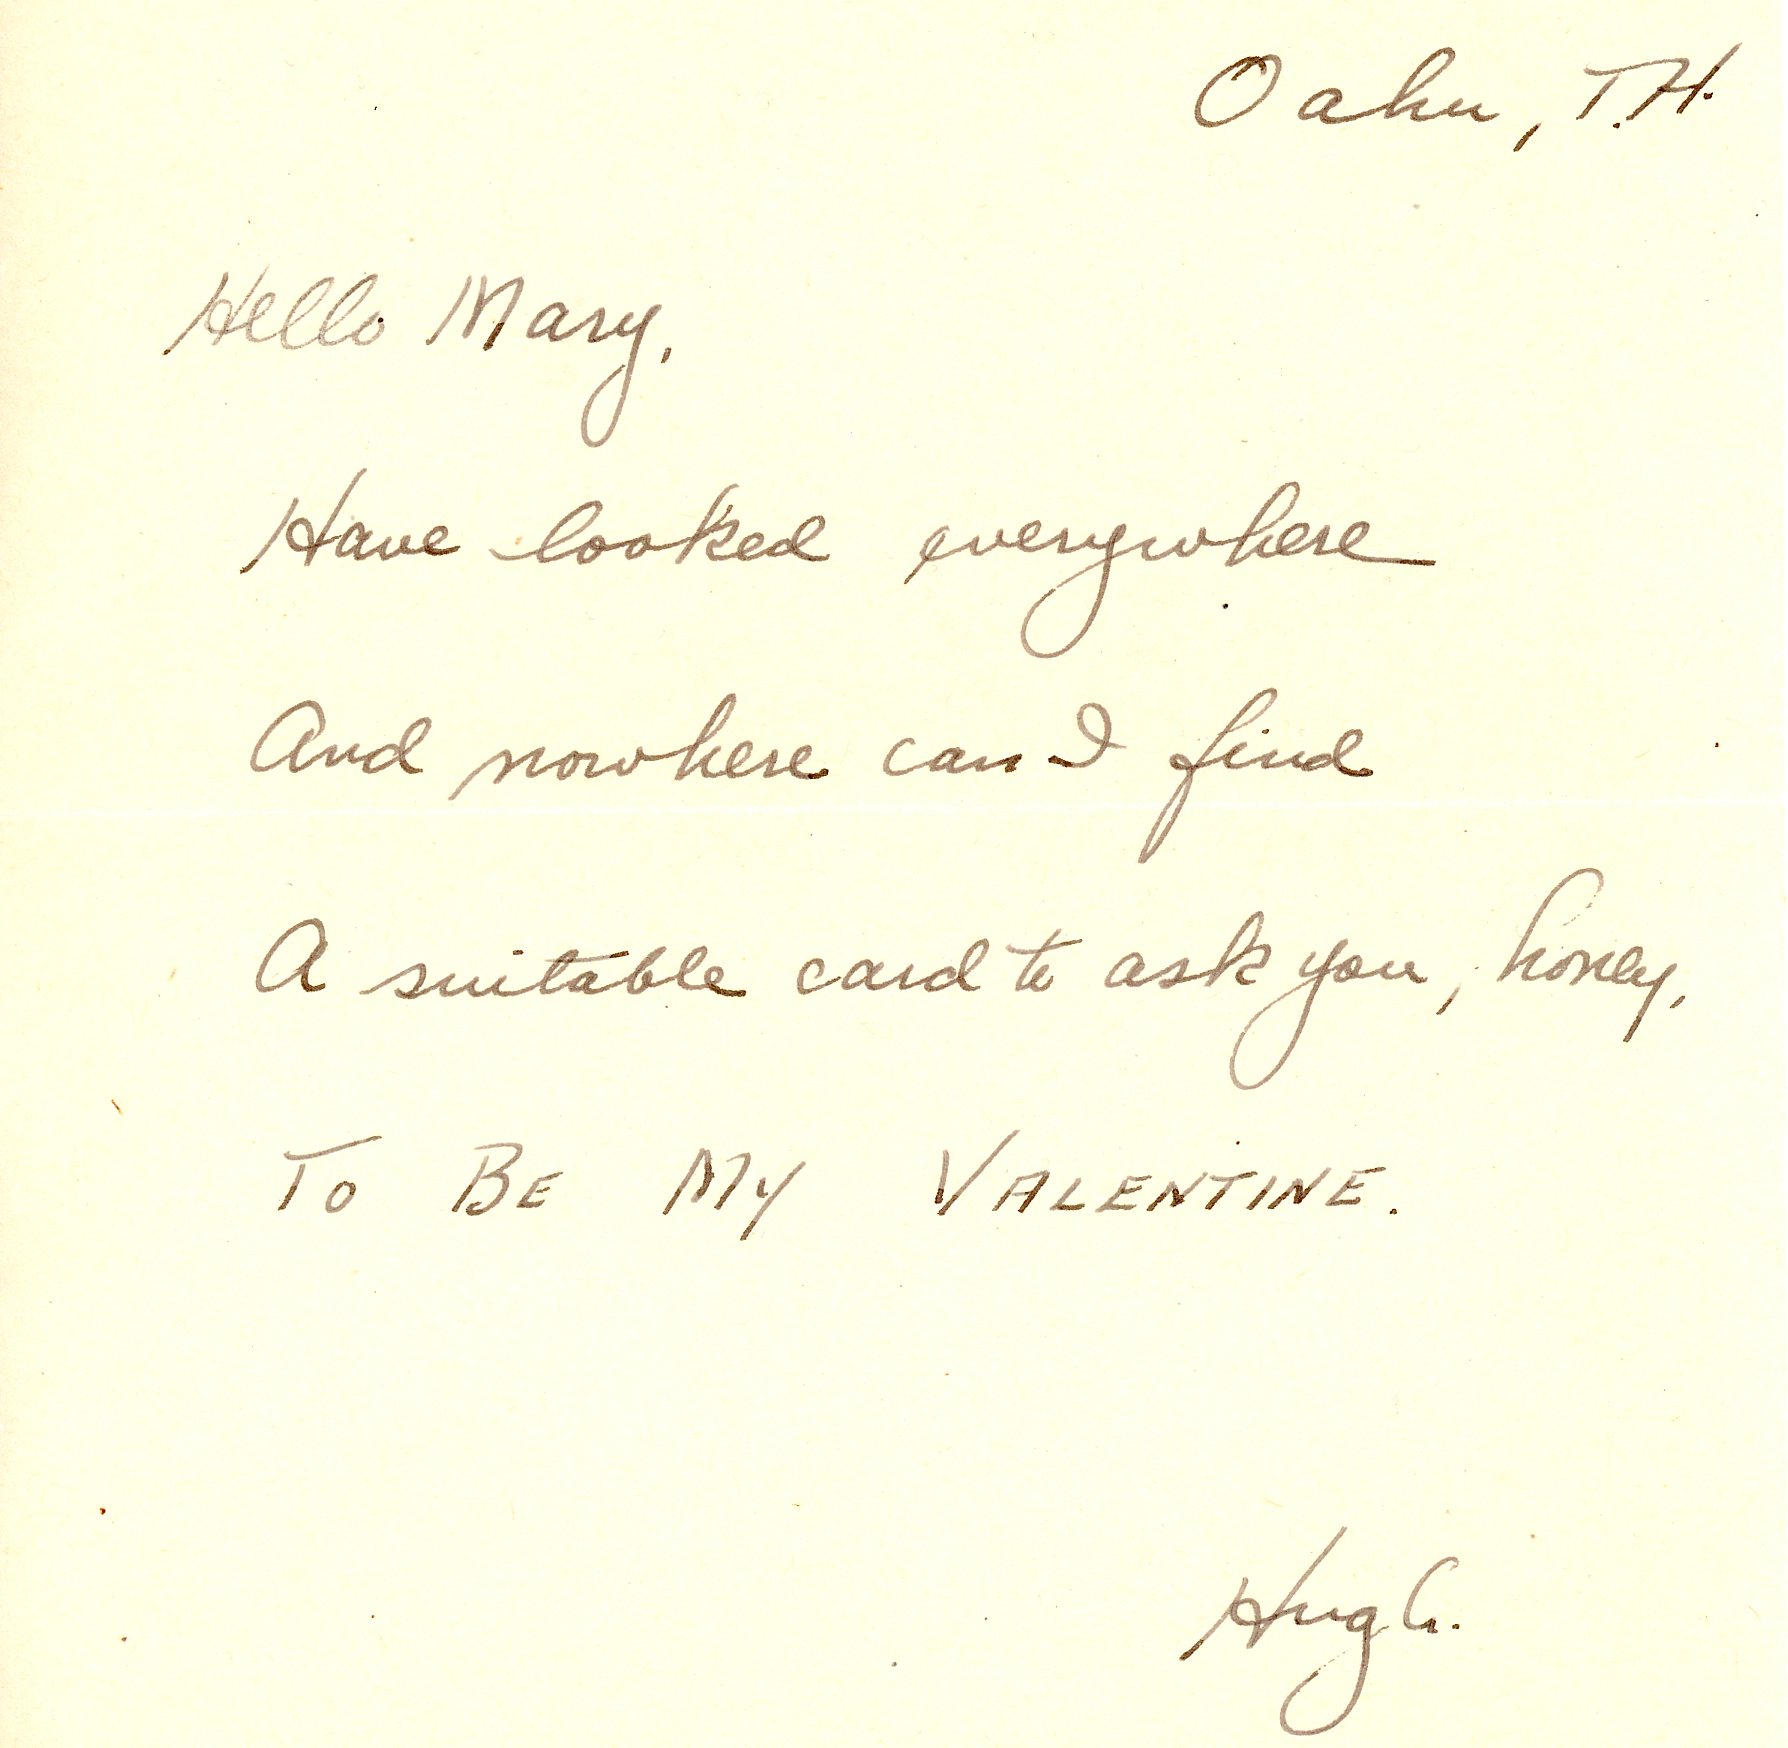 Oahu, T.H.
Hello Mary,
Have looked everywhere
And nowhere can I find
A suitable card to ask you, honey,
To Be My Valentine.
Hugh.